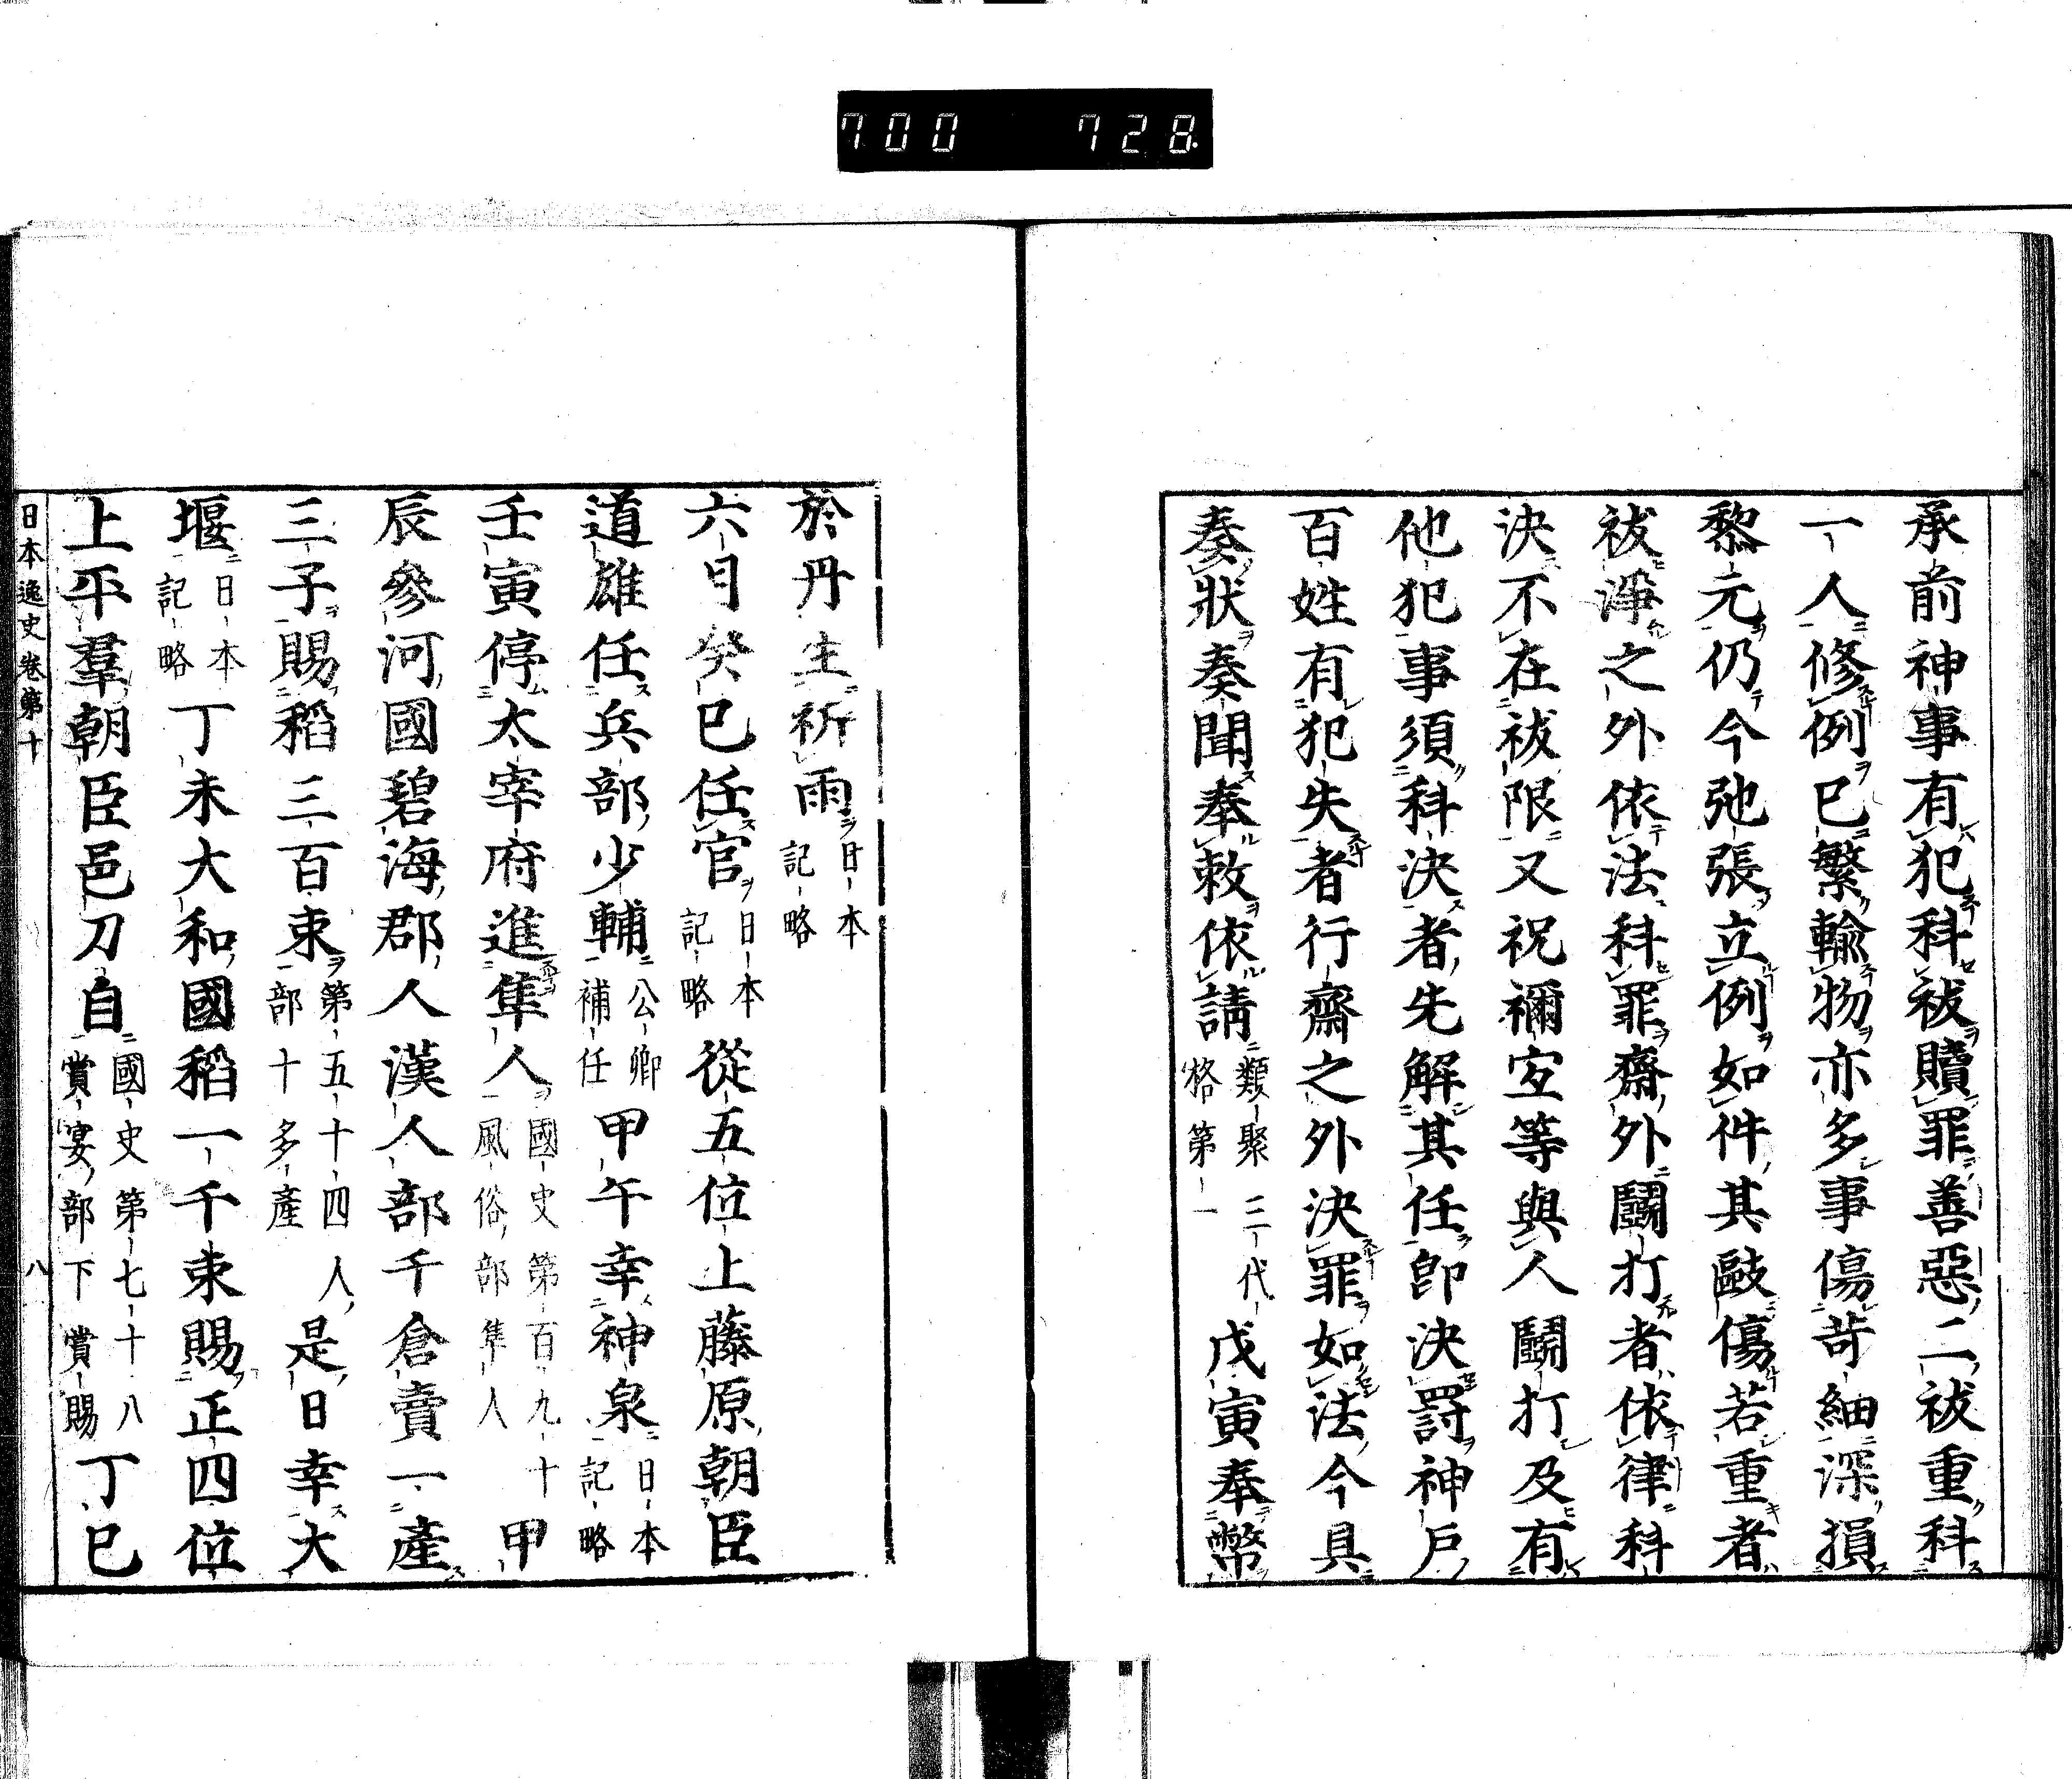 700 728
承前神事有犯科祓贖罪善惡二祓重科
一人修例已繁輸物亦多事傷苛細深損
黎元仍今弛張立例如件其毆傷若重者
祓淨之外依法科罪齋外鬪打者依律科
決不在祓限又祝禰宜等與人鬪打及有
他犯事須科決者先解其任卽決罸神戶
百姓有犯失者行齋之外決罪如法今具
奏狀奏聞奉敕依請類聚三代格第一戊寅奉幣
於丹生祈雨日本記略
六月癸巳任官日本記略從五位上藤原朝臣
道雄任兵部少輔公卿補任甲午幸神泉日本記略
壬寅停太宰府進隼人國史第百九十風俗部隼人甲
辰參河國碧海郡人漢人部千倉賣一產
三子賜稻三百束第五十四人部十多產是日幸大
堰日本記略丁未大和國稻一千束賜正四位
上平羣朝臣邑刀自國史第七十八賞宴部下賞賜丁巳
日本逸史卷第十 八